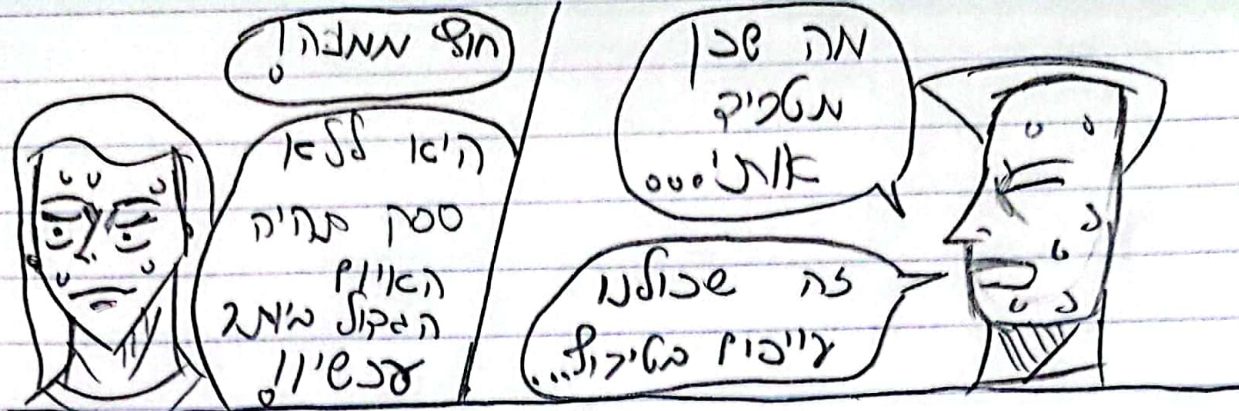 מה שכן
מטריד
אותי...
זה שכולנו
עייפים בטירוף...
חוץ ממנה!
היא ללא
ספק תהיה
האיום
הגדול ביותר
עכשיו!